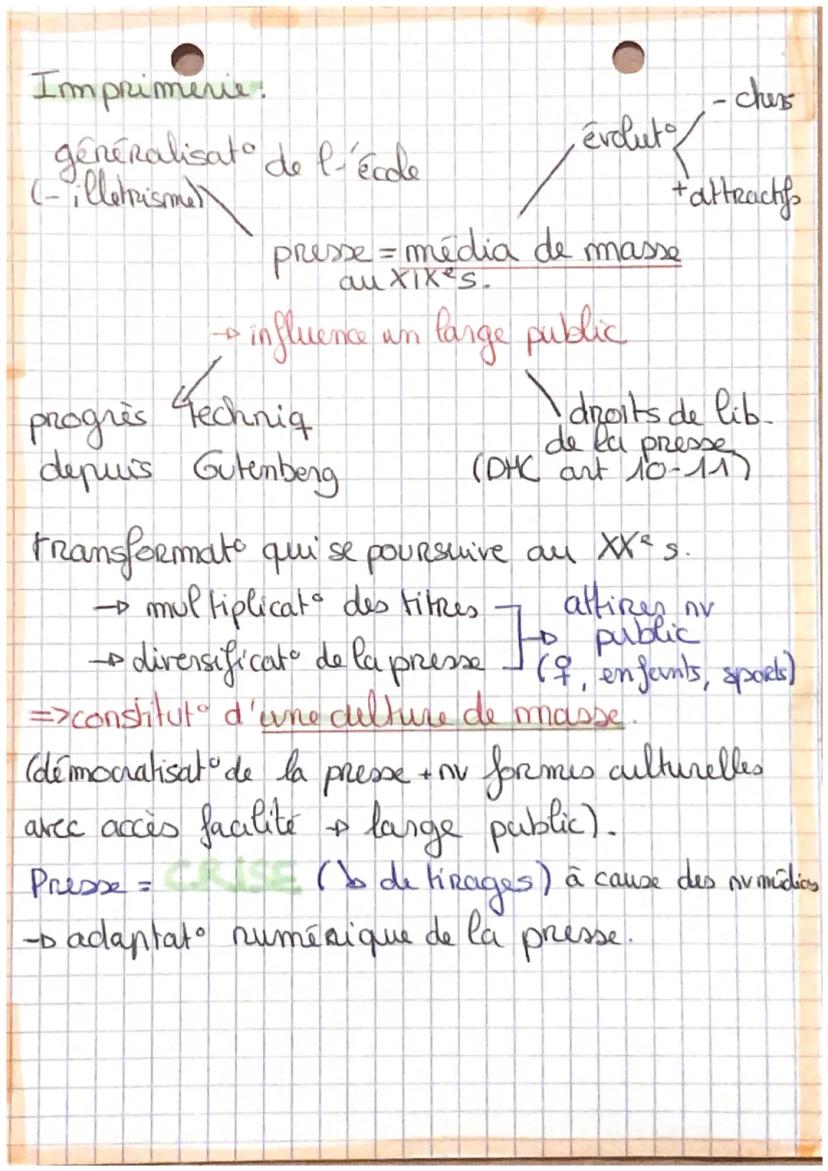 Imprimerie:
généralisat° de l'école
(- illetrisme)
évolut°
- chers
+ attractifs
presse = média de masse
au XIXe s.
→ influence un large public
progrès techniq
depuis Gutenberg
droits de lib.
de la presse
(DHC art 10-11)
transformat° qui se poursuive au XXe s.
→ multiplicat° des titres
→ diversificat° de la presse
→ attirer nv
public
(♀, enfants, sports)
=> constitut° d'une culture de masse.
(démocratisat° de la presse + nv formes culturelles
avec accès facilité → large public).
Presse = CRISE (↘ de tirages) à cause des nv médias
→ adaptat° numérique de la presse.